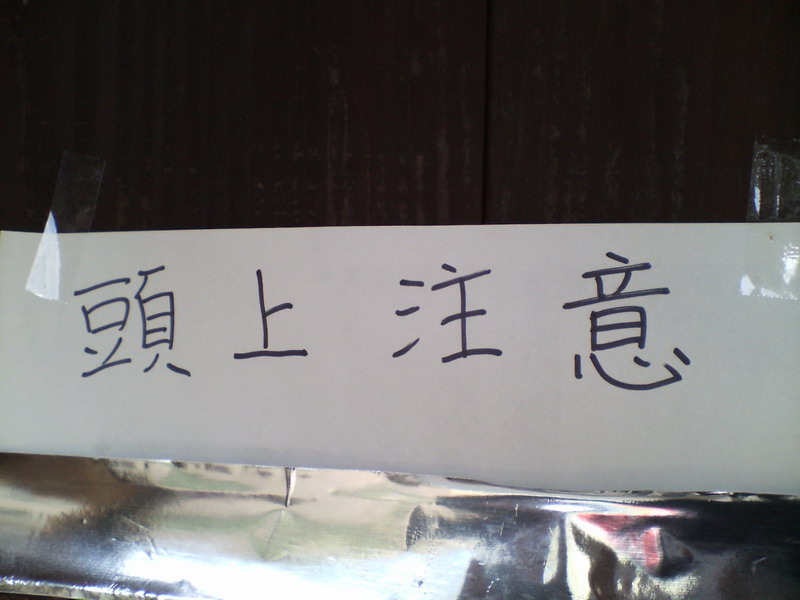 頭上注意